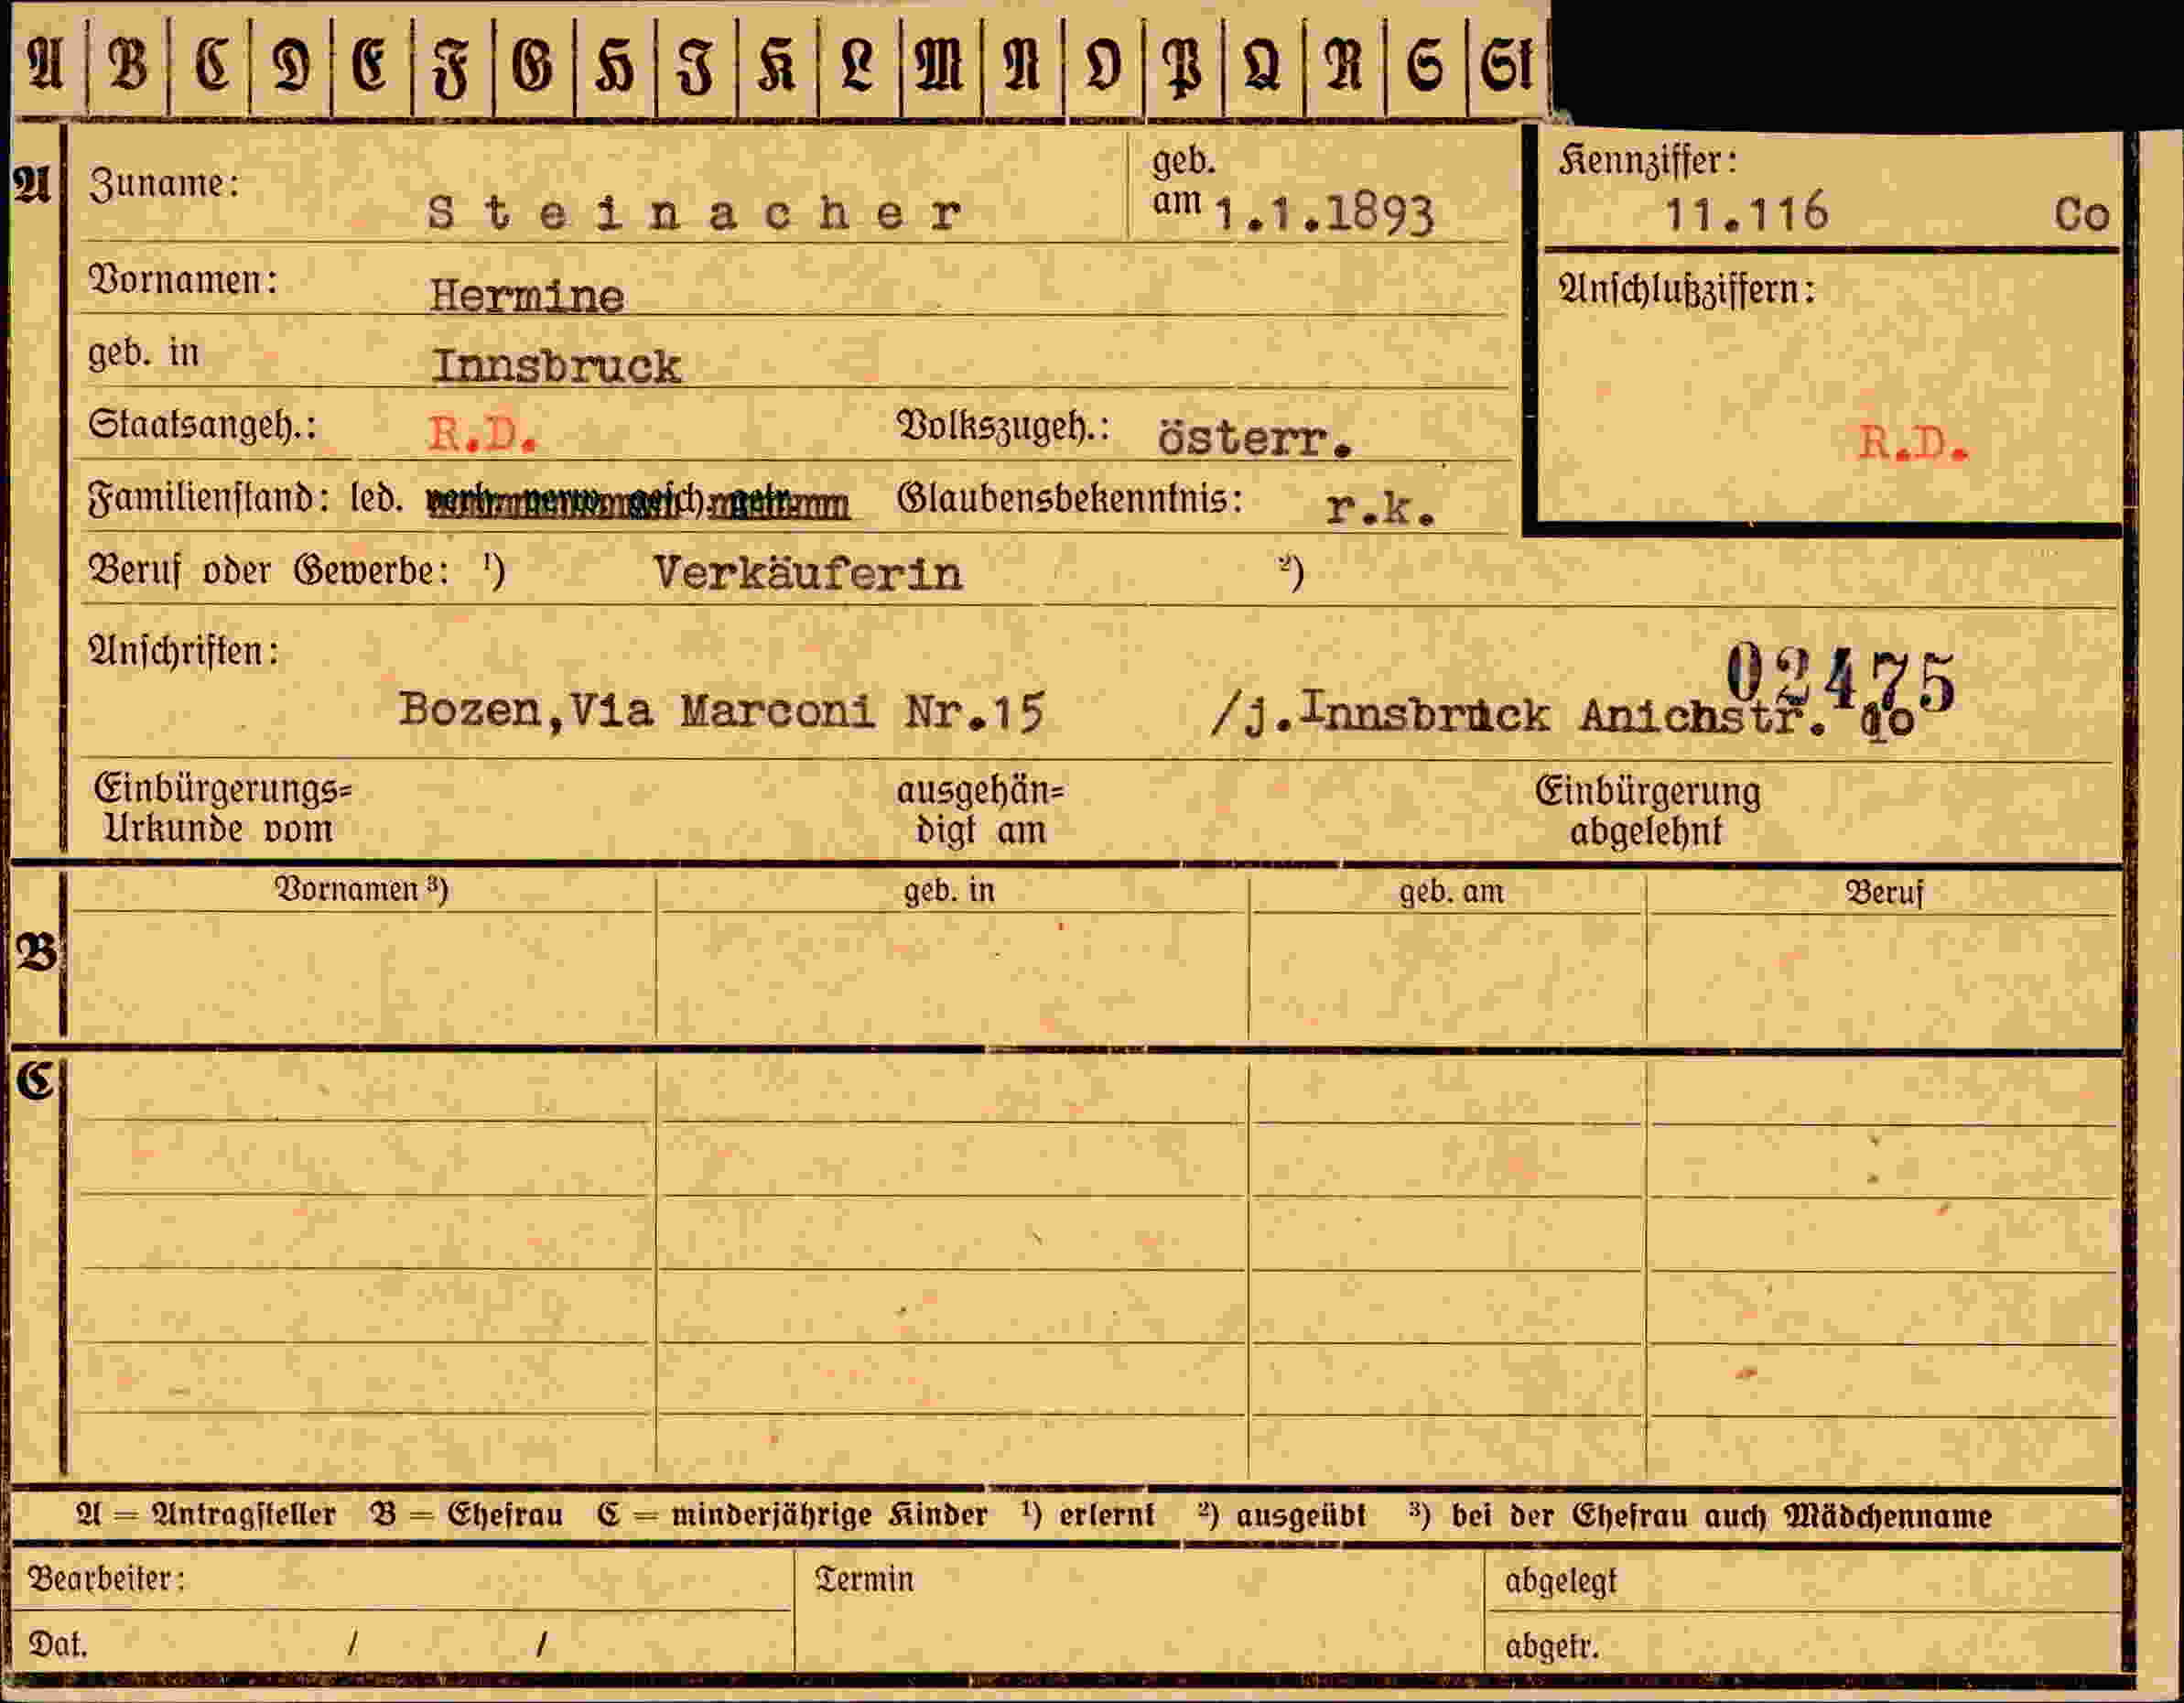 A B C D E F G H I K L M N O P Q R S St
A Zuname: Steinacher geb. am 1.1.1893 Kennziffer: 11.116 Co
Vornamen: Hermine Anschlußziffern:
geb. in Innsbruck
Staatsangeh.: R.D. Volkszugeh.: österr. R.D.
Familienstand: led. Glaubensbekenntnis: r.k.
Beruf oder Gewerbe: ¹) Verkäuferin ²)
Anschriften: 02475
Bozen,Via Marconi Nr.15 /j.Innsbruck Anichstr.
Einbürgerungs= ausgehän= Einbürgerung
Urkunde vom digt am abgelehnt
Vornamen ³) geb. in geb. am Beruf
B
C
A = Antragsteller B = Ehefrau C = minderjährige Kinder ¹) erlernt ²) ausgeübt ³) bei der Ehefrau auch Mädchenname
Bearbeiter: Termin abgelegt
Dat. / / abgetr.